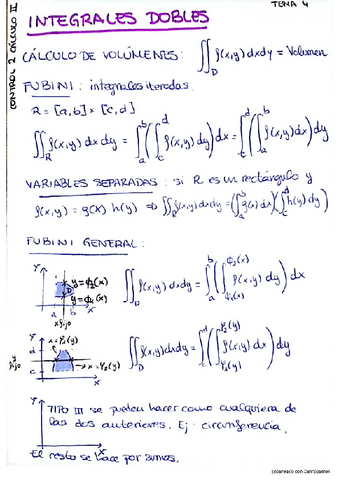 TEMA 4
INTEGRALES DOBLES
CONTROL 2 CÁLCULO II
CÁLCULO DE VOLÚMENES: ∬_D f(x,y) dx dy = Volumen
FUBINI: integrales iteradas.
R = [a,b] × [c,d]
∬_R f(x,y) dx dy = ∫_a^b (∫_c^d f(x,y) dy) dx = ∫_c^d (∫_a^b f(x,y) dx) dy
VARIABLES SEPARADAS: si R es un rectángulo y
f(x,y) = g(x) h(y) ⇒ ∬_R f(x,y) dx dy = (∫_a^b g(x) dx)(∫_c^d h(y) dy)
FUBINI GENERAL:
y = ϕ2(x)
D
y = ϕ1(x)
a b x
x fijo
∬_D f(x,y) dx dy = ∫_a^b (∫_ϕ1(x)^ϕ2(x) f(x,y) dy) dx
y fijo
∬_D f(x,y) dx dy = ∫_c^d
TIPO III se pueden hacer como cualquiera de
los dos anteriores. Ej: circunferencia.
El resto se hace por sumas.
Escaneado con CamScanner